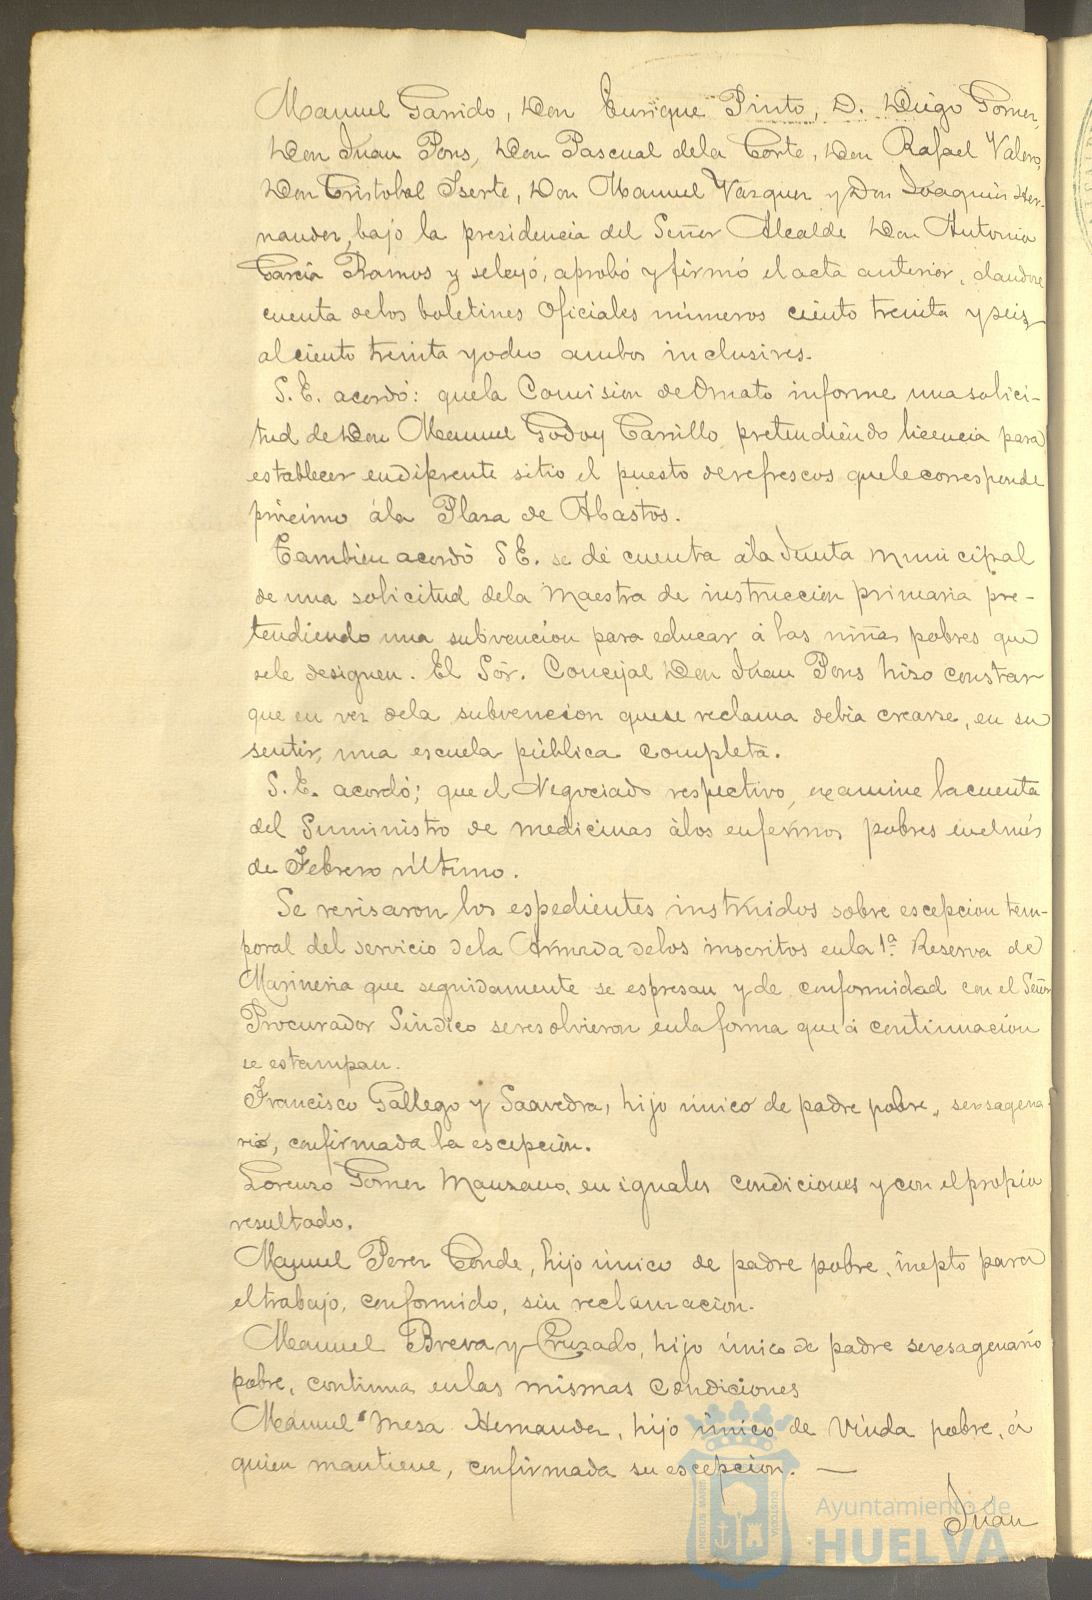 Manuel Garrido, Don Enrique Pinto, D. Diego Gomez,
Don Juan Pons, Don Pascual dela Corte, Don Rafael Valero,
Don Cristobal Iserte, Don Manuel Vazquez y Don Joaquin Her-
nandez, bajo la presidencia del Señor Alcalde Don Antonio
Garcia Ramos y seleyó, aprobó y firmó el acta anterior, dandose
cuenta delos boletines Oficiales números ciento treinta y seis
al ciento treinta y ocho ambos inclusives.
S. E. acordó: quela Comision de Ornato informe una solici-
tud de Don Manuel Godoy Carrillo pretendiendo licencia para
establecer en diferente sitio el puesto de refrescos quele corresponde
prócimo ála Plaza de Abastos.
Tambien acordó S E. se dé cuenta ála Junta municipal
de una solicitud dela Maestra de instruccion primaria pre-
tendiendo una subvencion para educar á las niñas pobres que
sele designen. El Sór. Concejal Don Juan Pons hizo constar
que en vez dela subvencion quese reclama debia crearse, en su
sentir, una escuela pública completa.
S. E. acordó; que el Negociado respectivo, examine la cuenta
del Suministro de medicinas álos enfermos pobres en el més
de Febrero último.
Se revisaron los espedientes instruidos sobre escepcion tem-
poral del servicio dela Armada delos inscritos enla 1ª Reserva de
Marineria que seguidamente se espresan y de conformidad con el Señor
Procurador Sindico se resolvieron enla forma que á continuacion
se estampan.
Francisco Gallego y Saavedra, hijo único de padre pobre, sexsagena-
rio, confirmada la escepcion.
Lorenzo Gomez Manzano, en iguales condiciones y con el propio
resultado.
Manuel Perez Conde, hijo único de padre pobre, inepto para
el trabajo, conformido, sin reclamacion.
Manuel Breva y Cruzado, hijo único de padre sexsagenario
pobre, continua enlas mismas condiciones
Manuel Mesa Hernandez, hijo único de Viuda pobre, á
quien mantiene, confirmada su escepcion. —
Juan
Ayuntamiento de
HUELVA